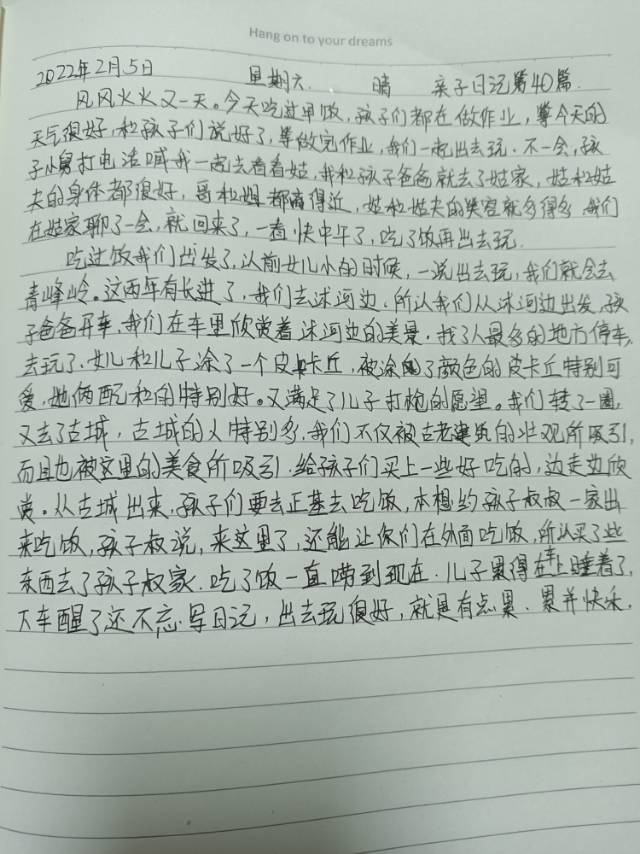 Hang on to your dreams
2022年2月5日 星期六 晴 亲子日记第40篇.
风风火火又一天。今天吃过早饭,孩子们都在做作业,今天的
天气很好,和孩子们说好了,等做完作业,我们一起出去玩.不一会,孩
子小舅打电话喊我一起去看看姑,我和孩子爸爸就去了姑家,姑和姑
夫的身体都很好,哥和姐都离得近,姑和姑夫的笑容就多得多,我们
在姑家聊了一会,就回来了,一看快中午了,吃了饭再出去玩.
吃过饭我们出发了,以前女儿小的时候,一说出去玩,我们就会去
青峰岭。这两年有长进了,我们去沭河边.所以我们从沭河边出发,孩
子爸爸开车,我们在车里欣赏着沭河边的美景.找了人最多的地方停车,
去玩了.女儿和儿子涂了一个皮卡丘,被涂了颜色的皮卡丘特别可
爱,她俩配和的特别好。又满足了儿子打枪的愿望。我们转了一圈,
又去了古城,古城的人特别多,我们不仅被古老建筑的壮观所吸引,
而且也被这里的美食所吸引.给孩子们买上一些好吃的,边走边欣
赏。从古城出来,孩子们要去正基去吃饭,本想约孩子叔叔一家出
来吃饭,孩子叔说,来这里了,还能让你们在外面吃饭,所以买了些
东西去了孩子叔家.吃了饭一直唠到现在.儿子累得在车上睡着了,
下车醒了还不忘写日记,出去玩很好,就是有点累.累并快乐.